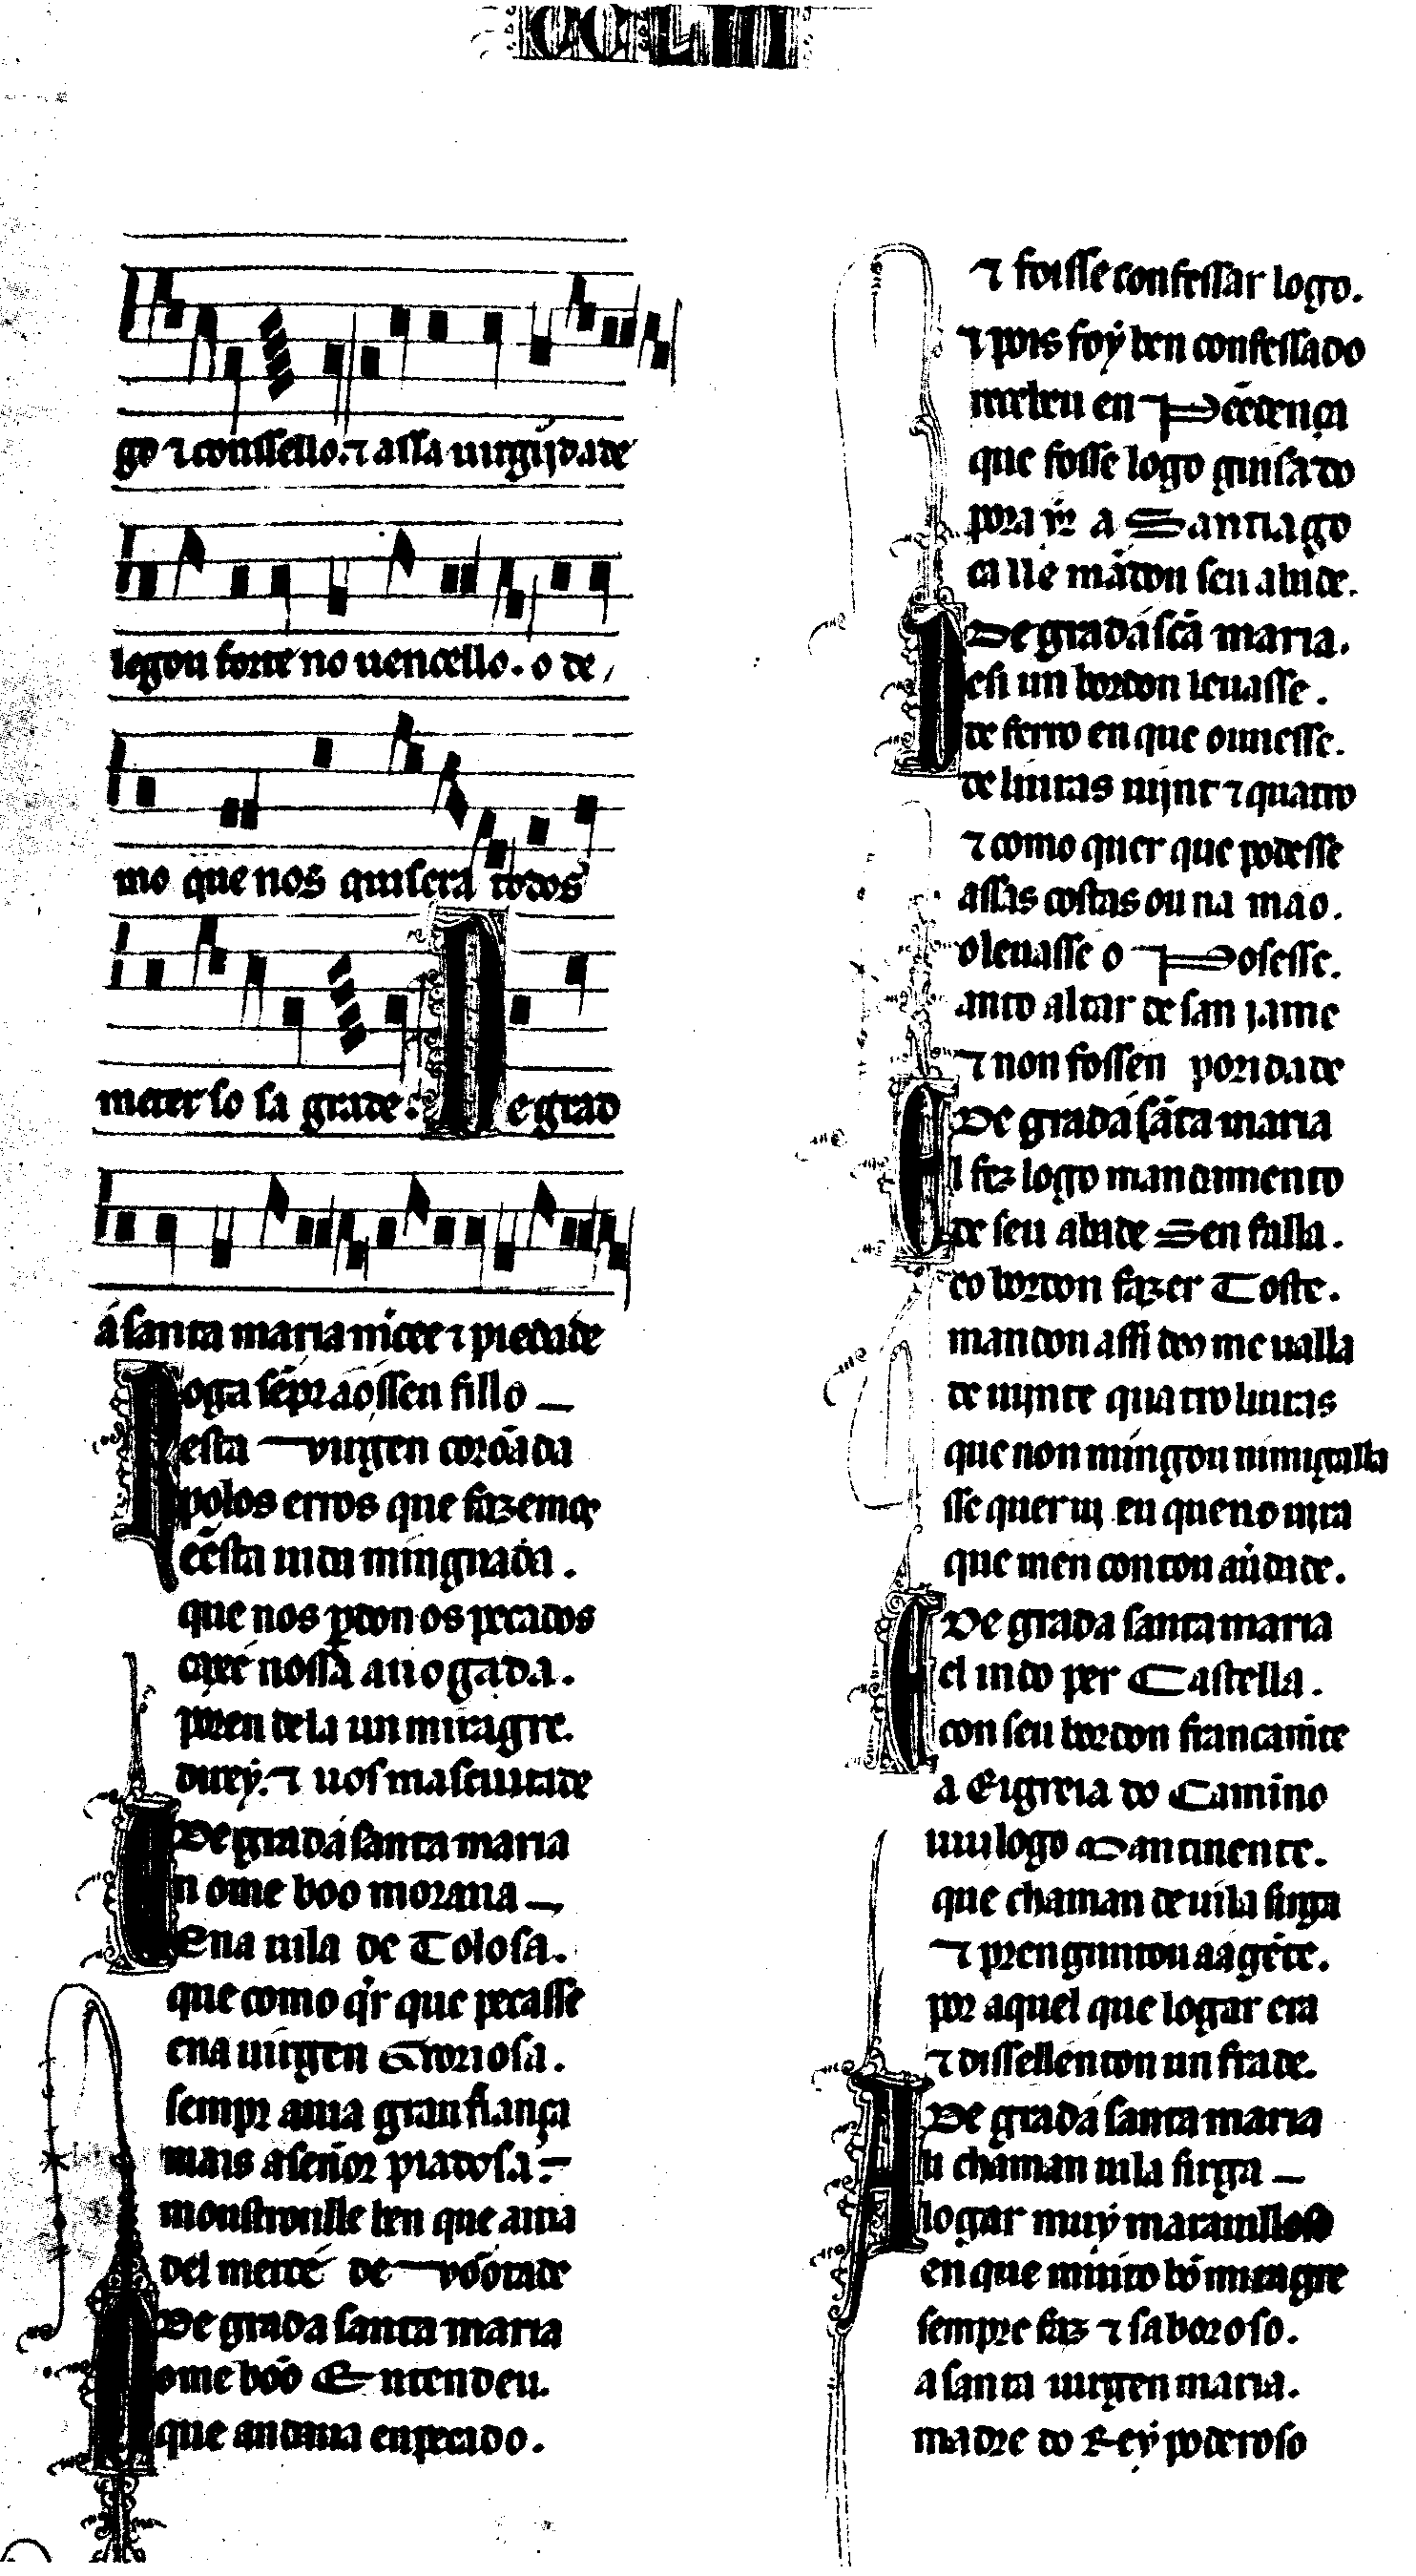 CCLIII
go ⁊ conssello. ⁊ assa uirgĩjdade
legou forte no uencello. o de,
mo que nos quisera todos
meter so sa grade. De grad
á santa maria m̃cee ⁊ piedade
Roga sẽpr ao ssen fillo
esta uirgen corõada
polos erros que fazemos
cẽsta uida minguada.
que nos ꝑdon os pecados
ca por nossa auogada.
poren dela un miragre.
direy. ⁊ uos mascuitade
De gradá santa maria
Un ome boo moraua
Ena uila de Tolosa.
que como q̇r que pecasse
ena uirgen Groriosa.
sempr auia gran fiança
mais a sen̄or piadosa.
monstroulle ben que auia
del mercé de uõotade
De grada santa maria
Ome bõo Entendeu.
que andaua en pecado.
⁊ foisse confessar logo.
⁊ pois foy ben confessado
recebeu en Pẽedença
que fosse logo guisado
pora yr a Santiago
ca lle mãdou seu abade.
De gradá scã maria.
Desi un bordon leuasse.
de ferro en que ouuesse.
de liuras uijnt ⁊ quatro
⁊ como quer que podesse
assas costas ou na mao.
o leuasse o Posesse.
anto altar de san jame
⁊ non foss en poridade
De gradá sãta maria
El fez logo mandamento
de seu abade Sen falla.
e o bordon fazer Toste.
mandou assi deus me ualla
de uijnte quatro liuras
que non mingou nimigalla
sse quer ui eu que no uira
que men contou a uerdade.
De grada santa maria
E el indo per Castella.
con seu bordon francam̃te
a Eigreia do Camino
uiu logo Dantinente.
que chaman de uila sirga
⁊ prenguntou aa gẽte.
por aquel que logar era
⁊ dissellentou un frade.
De gradá santa maria
Ali chaman uila sirga
logar muy marauilloso
en que muito bõ miragre
sempre faz ⁊ saboroso.
a santa uirgen maria.
madre do Rey poderoso